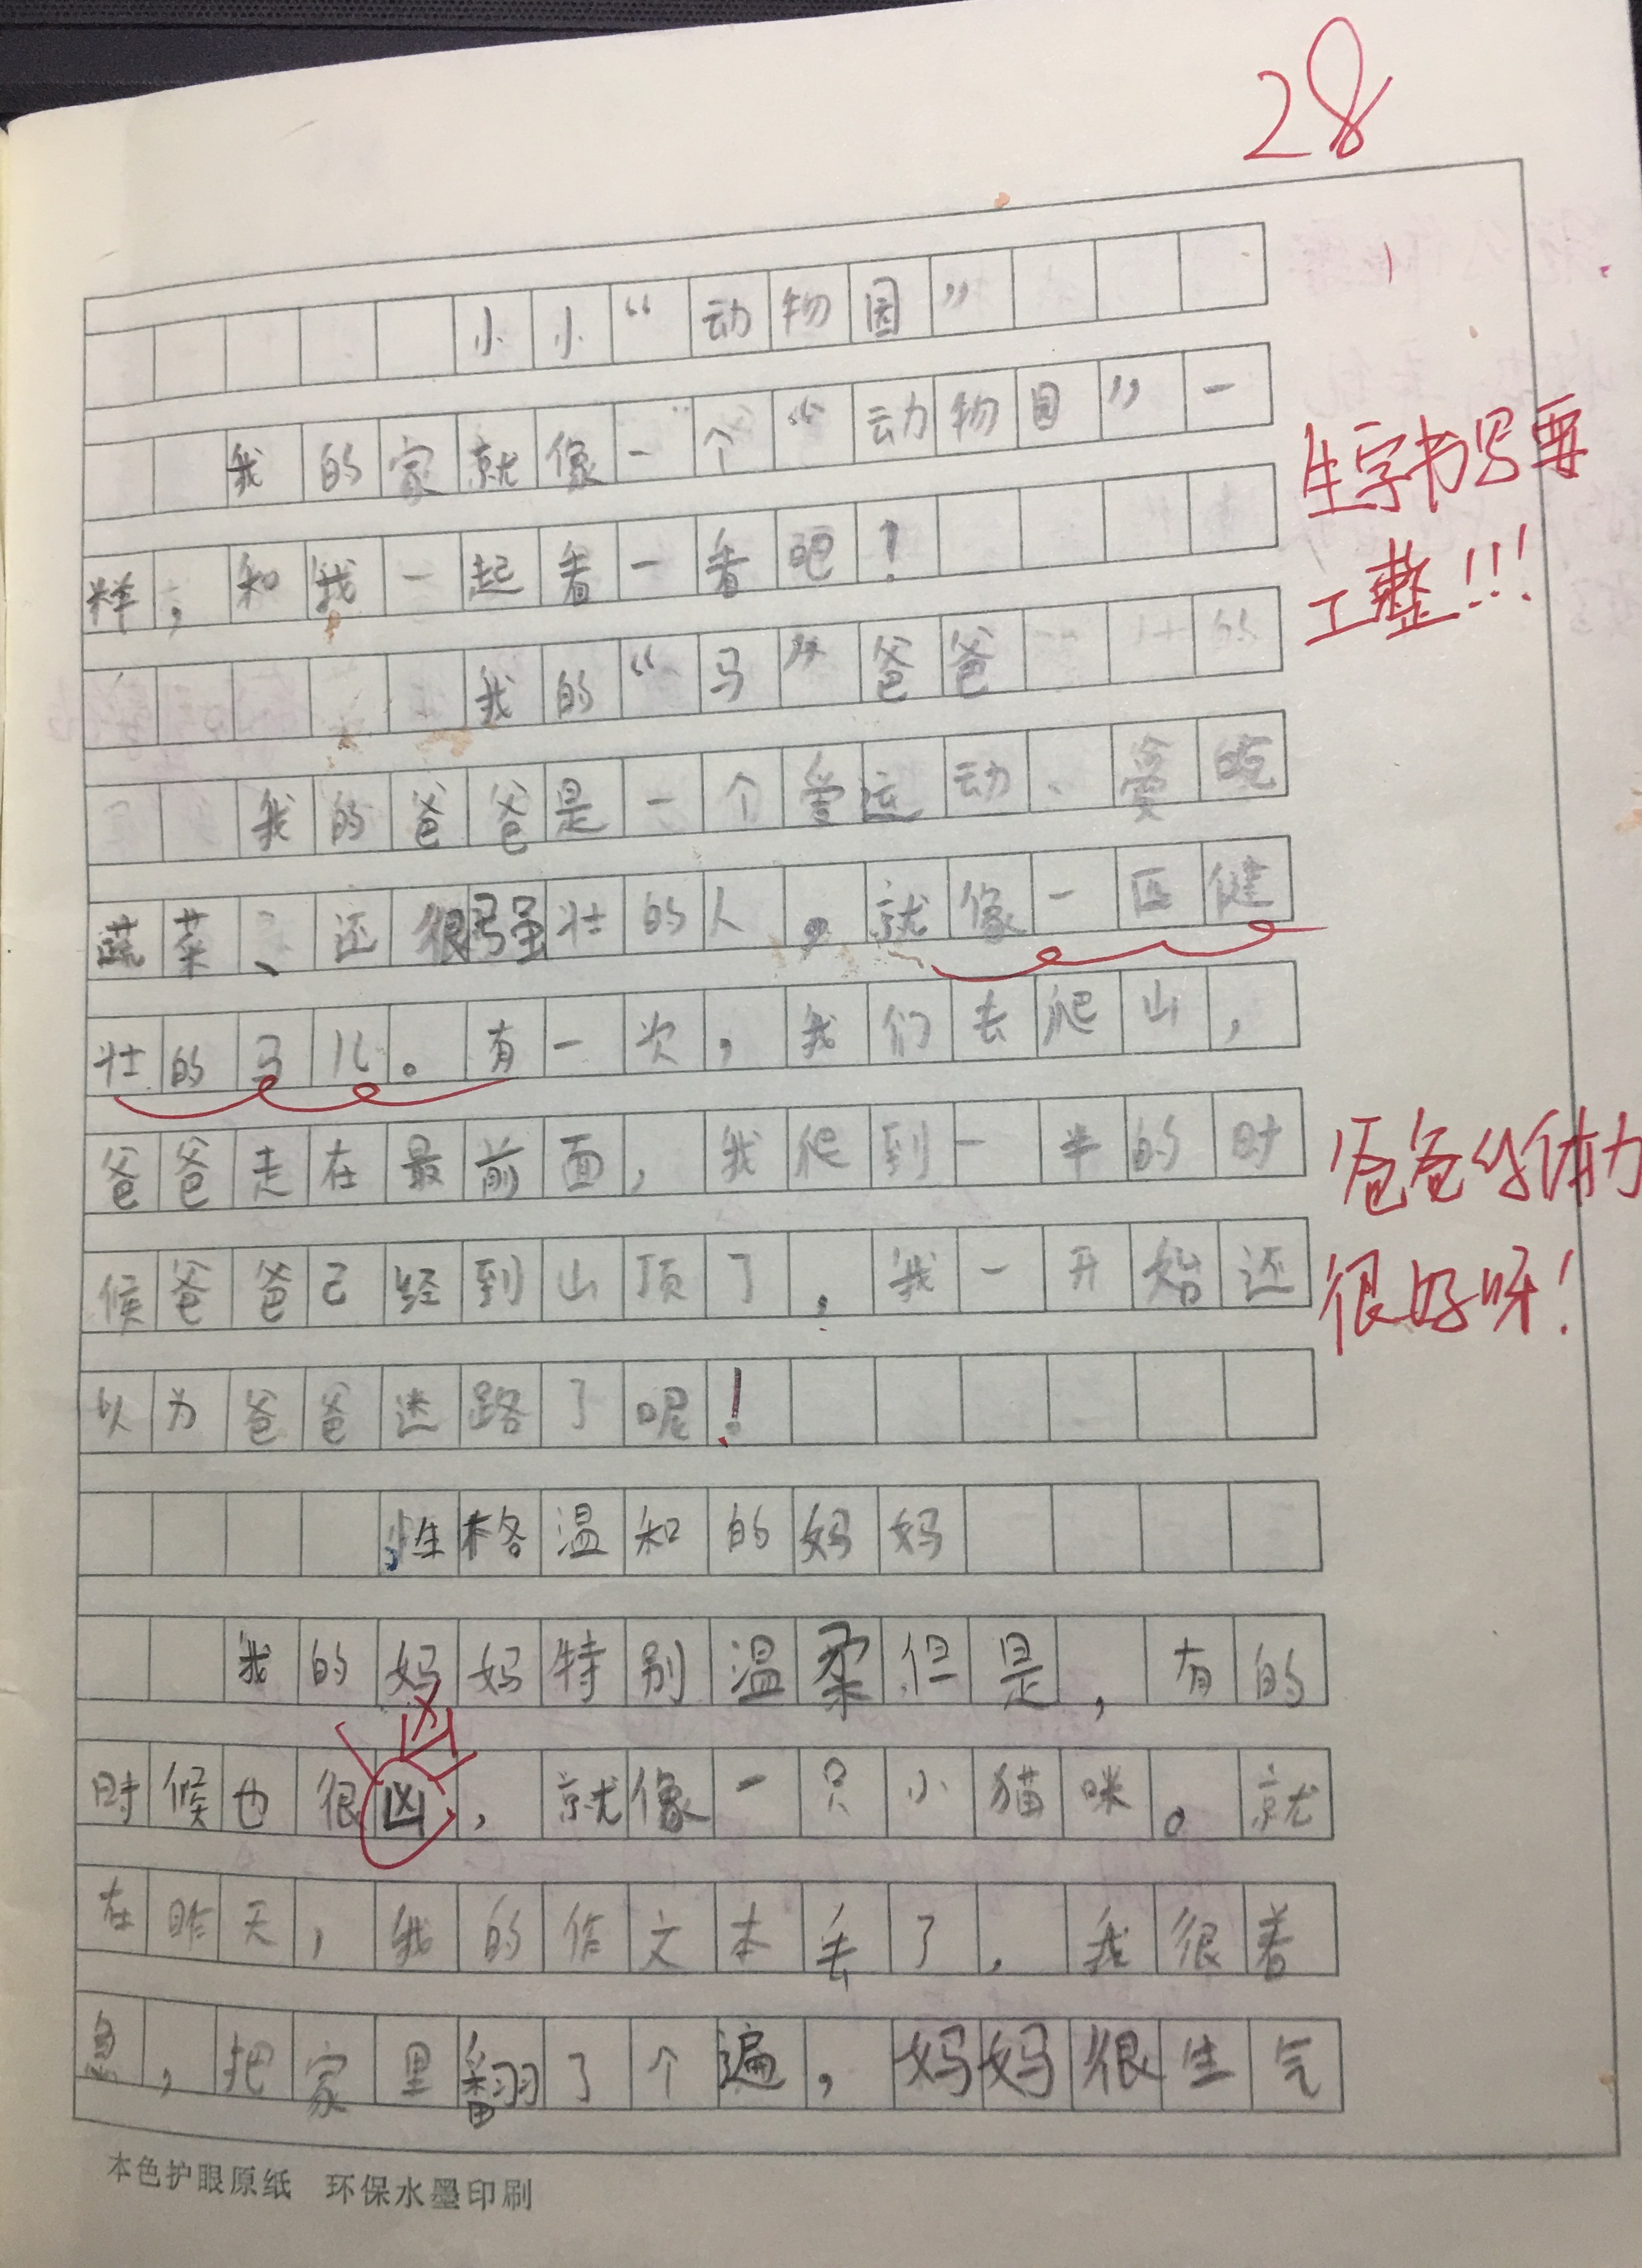 28
小小“动物园”
我的家就像一个“动物园”一
生字书写要
样，和我一起看一看吧！
工整!!!
我的“马”爸爸
我的爸爸是一个爱运动、爱吃
蔬菜、还很强壮的人，就像一匹健
壮的马儿。有一次，我们去爬山，
爸爸走在最前面，我爬到一半的时
爸爸的体力
候爸爸已经到山顶了，我一开始还
很好呀！
以为爸爸迷路了呢！
性格温和的妈妈
我的妈妈特别温柔但是，有的
凶
时候也很凶，就像一只小猫咪。就
在昨天，我的作文本丢了，我很着
急，把家里翻了个遍，妈妈很生气
本色护眼原纸 环保水墨印刷